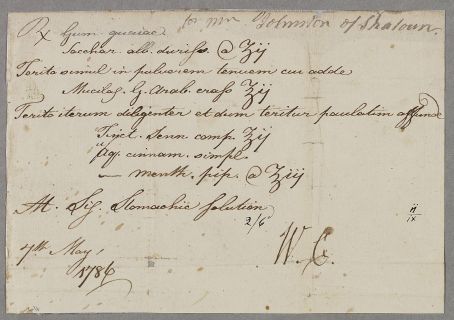 for Mr Johnston of Shatoun.
℞ Gum. guaiac
Sacchar. alb. duriss. @ ʒij
Terito simul in pulverem tenuem cui adde
Mucilag. G. Arab. crass ʒij
Terito iterum diligenter et dum teritur paulatim affunde
Tinct. Senn comp. ʒij
Aq. cinnam. simpl.
— menth. pip. @ ʒiij
M. Sig. Stomachic Solution
2/6
ii
ix
W. C.
7th May,
1786